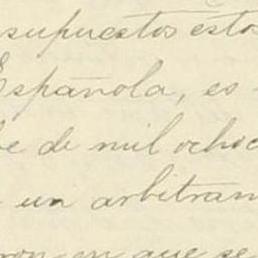 supuestos estos
Española, es
be de mil ochoc
un arbitram
ron en que se